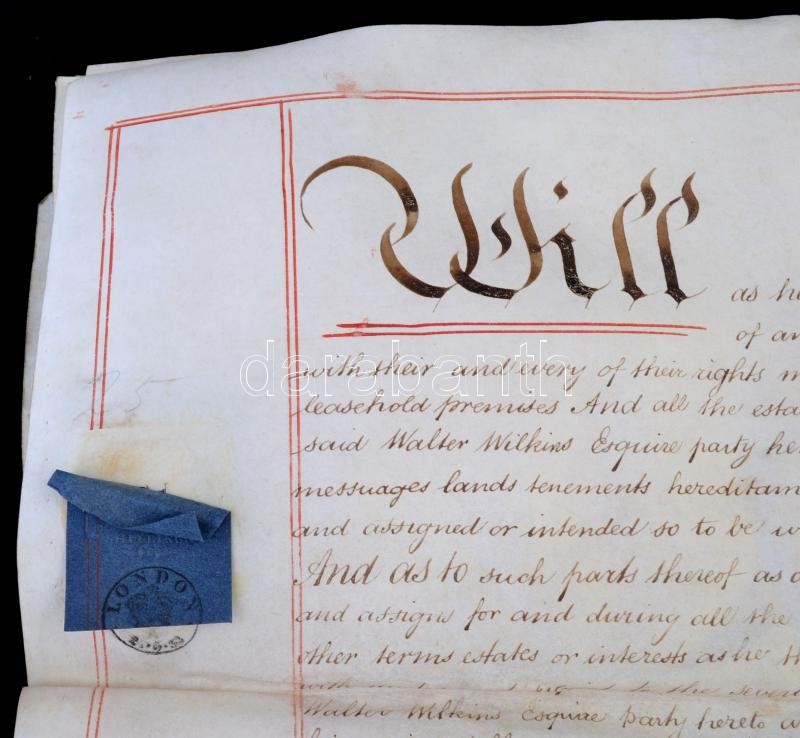 Will
as he
of an
25
darabanth
with their and every of their rights m
leasehold premises And all the esta
said Walter Wilkins Esquire party he
messuages lands tenements hereditam
and assigned or intended so to be w
And as to such parts thereof as a
SHILLING
LONDON
and assigns for and during all the
other terms estates or interests as he th
to the severa
Walter Wilkins Esquire party hereto a